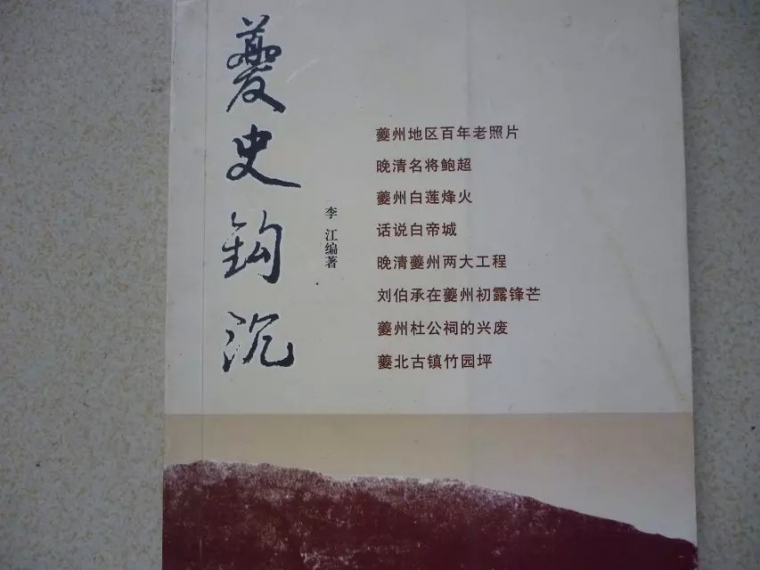 夔史钩沉
李江编著
夔州地区百年老照片
晚清名将鲍超
夔州白莲烽火
话说白帝城
晚清夔州两大工程
刘伯承在夔州初露锋芒
夔州杜公祠的兴废
夔北古镇竹园坪